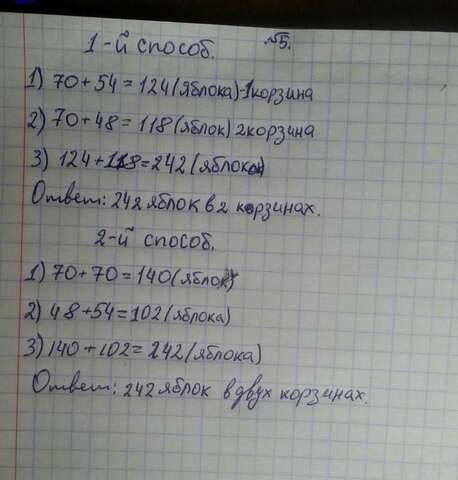 1-й способ. №5.
1) 70+54=124(яблока)-1корзина
2) 70+48=118(яблок) 2корзина
3) 124+118=242(яблока)
Ответ: 242 яблок в 2 корзинах.
2-й способ.
1) 70+70=140(яблок)
2) 48+54=102(яблока)
3) 140+102=242(яблока)
Ответ: 242 яблок в двух корзинах.